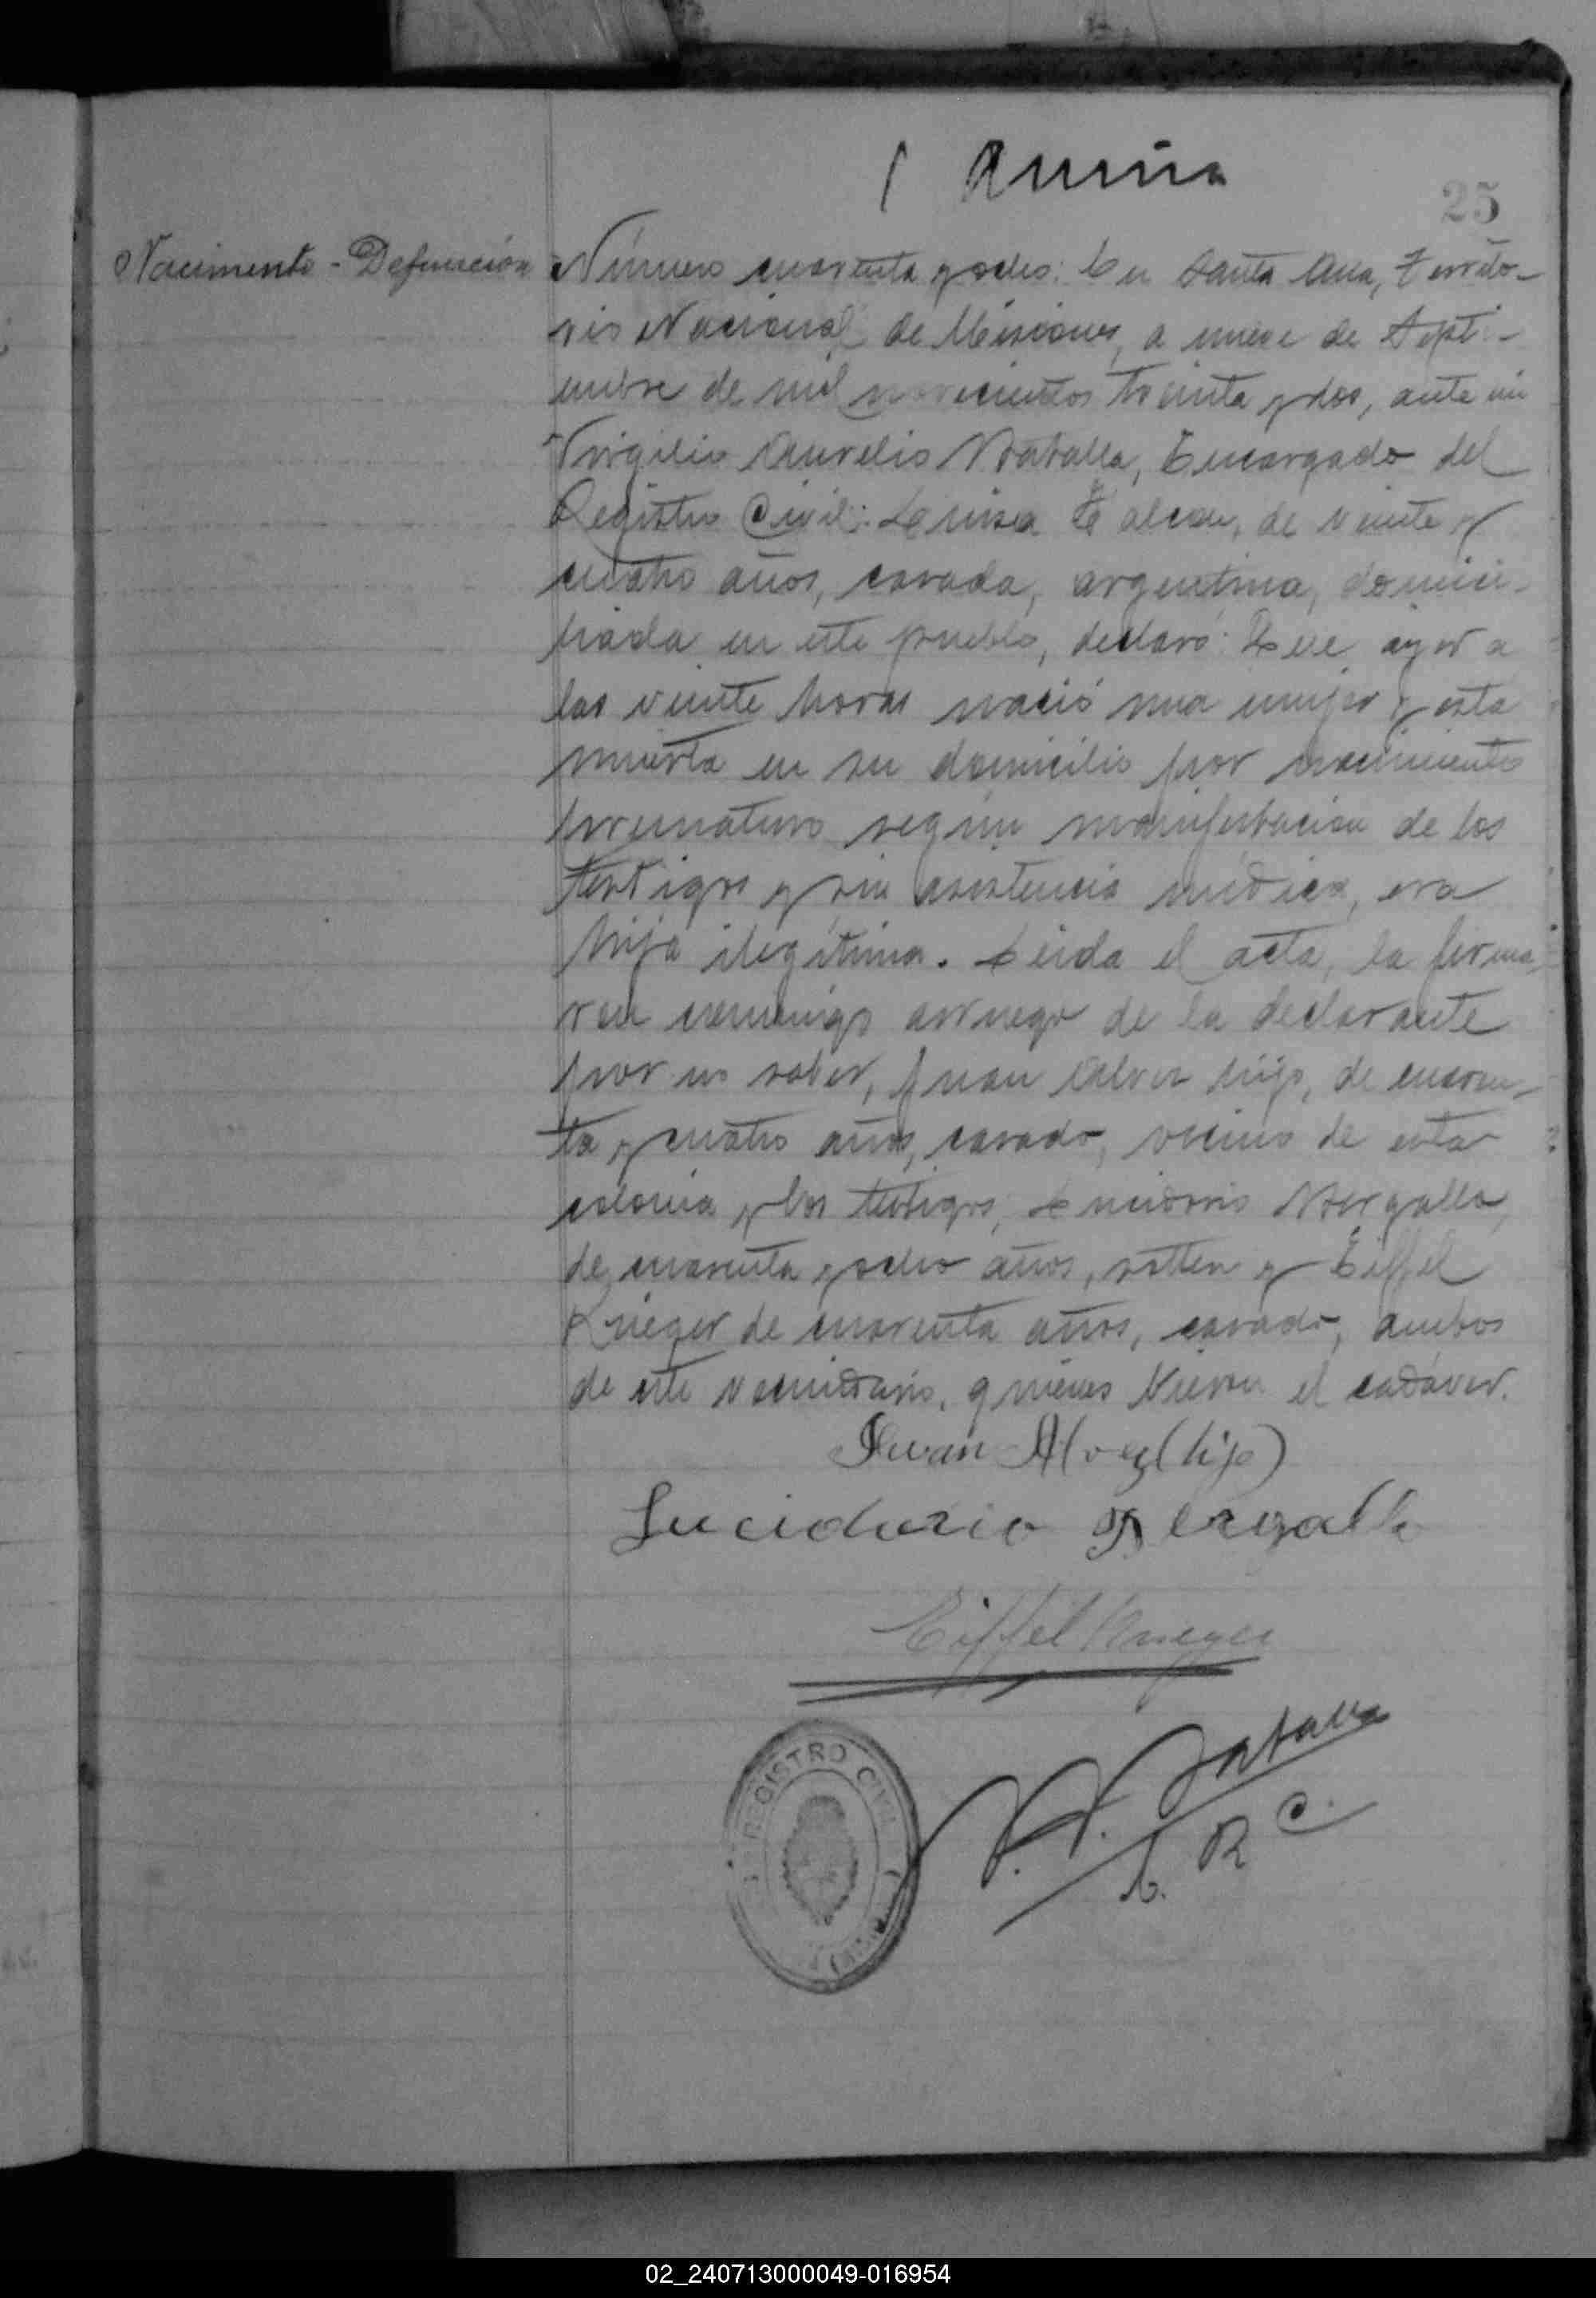 25
Nacimento - Defunción
Número cuarenta y ocho: En Santa Ana, Territo-
rio Nacional de Misiones, a nueve de Septi-
embre de mil novecientos treinta y dos, ante mi
Virgilio Aurelio Batalla, Encargado del
Registro Civil: Luisa de veinte y
cuatro años, casada, argentina, domici-
liada en este pueblo, declaró: Que ayer a
las veinte horas nació una mujer y esta
muerta en su domicilio por nacimiento
prematuro según manifestacion de los
testigos y sin asistencia médica, era
hija ilegítima. Leida el acta, la firma
ron conmigo arruego de la declarante
por no saber, Juan Alvez hijo, de cuaren-
ta y cuatro años, casado, vecino de esta
colonia y los testigos, Lucidorio Vergalla,
de cuarenta y ocho años, soltero y Eiffel
Krieger de cuarenta años, casado, ambos
de este vecindario, quienes vieron el cadáver.
Juan Alvez (hijo)
Lucidorio
Eiffel Krieger
V. A. Batalla
E. R. C.
REGISTRO CIVIL
02_240713000049-016954